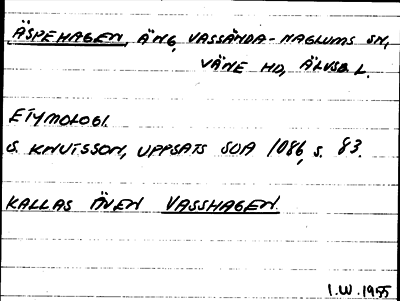 ÄSPEHAGEN, ÄNG, VASSÄNDA-NAGLUMS SN,
VÄNE HD, ÄLVSB. L.
ETYMOLOGI.
S. KNUTSSON, UPPSATS SOA 1086, S. 83.
KALLAS ÄVEN VASSHAGEN.
I.W. 1955